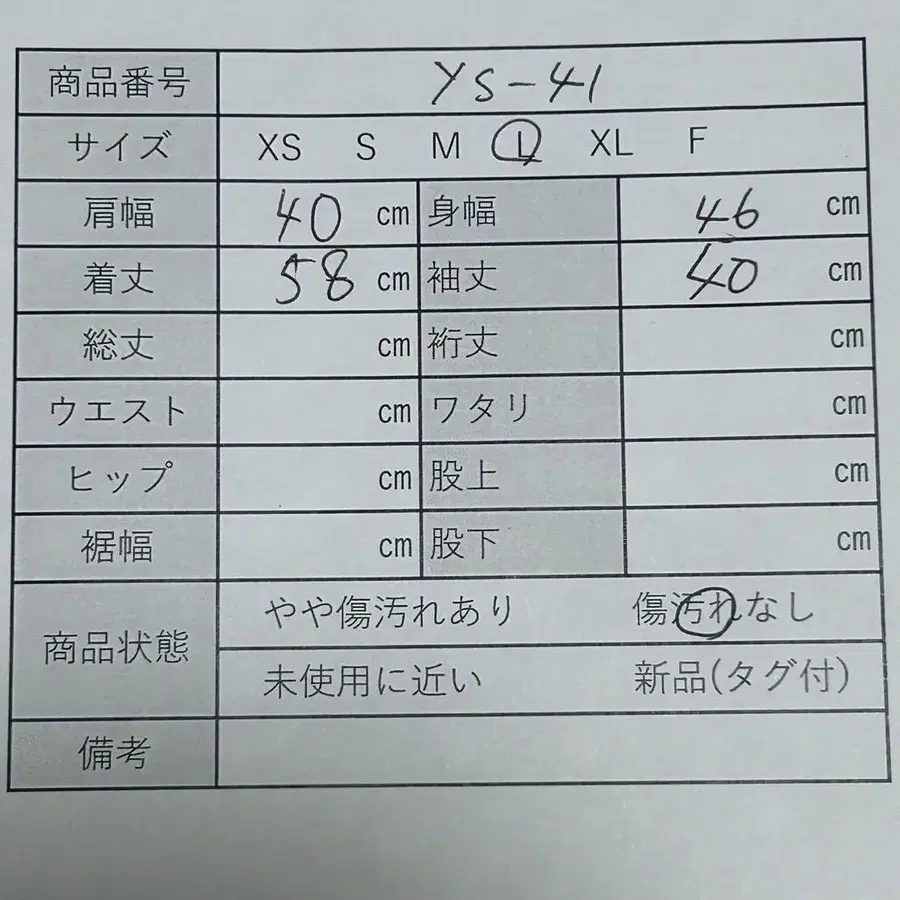 商品番号 YS-41
サイズ XS S M L XL F
肩幅 40 cm 身幅 46 cm
着丈 58 cm 袖丈 40 cm
総丈 cm 裄丈 cm
ウエスト cm ワタリ cm
ヒップ cm 股上 cm
裾幅 cm 股下 cm
商品状態 やや傷汚れあり 傷汚れなし
未使用に近い 新品(タグ付)
備考